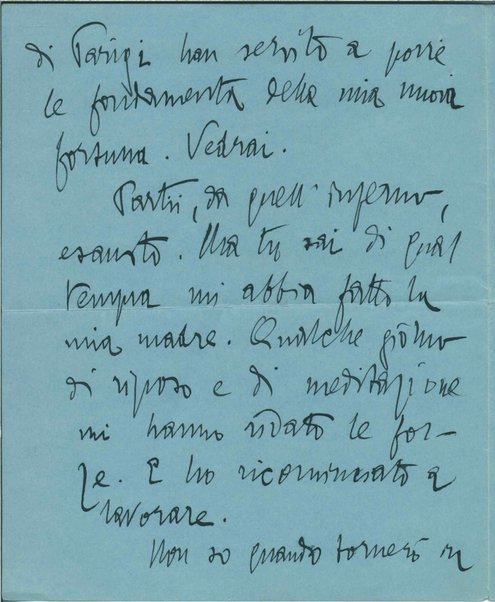 di Parigi han servito a porre
le fondamenta della mia nuova
fortuna. Vedrai.
Partii, da quell'inferno,
esausto. Ma tu sai di qual
tempra mi abbia fatto la
mia madre. Qualche giorno
di riposo e di meditazione
mi hanno ridato le for-
ze. E ho ricominciato a
lavorare.
Non so quando tornerò in